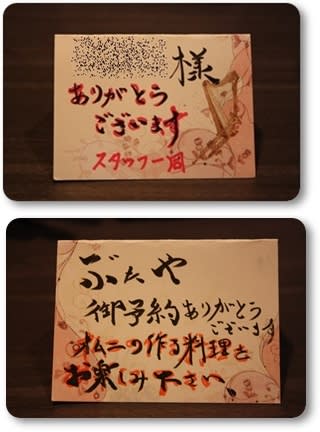 様
ありがとう
ございます
スタッフ一同
ぶたや
御予約ありがとう
ございます
オムニの作る料理を
お楽しみ下さい